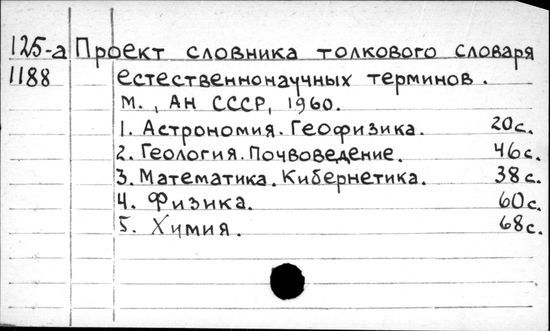 125-а Проект словника толкового словаря
1188 естественнонаучных терминов.
М., АН СССР, 1960.
1. Астрономия. Геофизика. 20с.
2. Геология. Почвоведение. 46с.
3. Математика. Кибернетика. 38с.
4. Физика. 60с.
5. Химия. 68с.